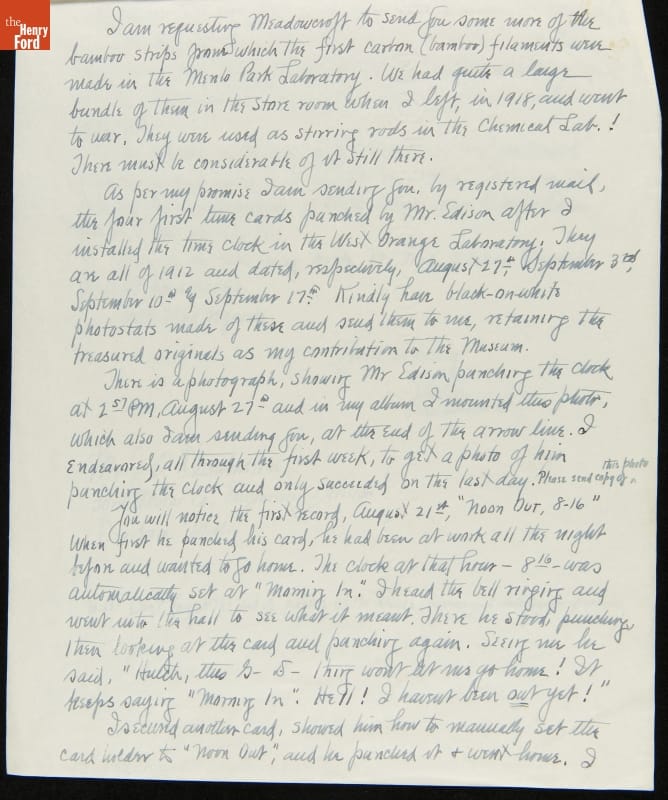 the
Henry
Ford
I am requesting Meadowcroft to send you some more of the
bamboo strips from which the first carbon (bamboo) filaments were
made in the Menlo Park Laboratory. We had quite a large
bundle of them in the store room when I left, in 1918, and went
to war. They were used as stirring rods in the Chemical Lab.!
There must be considerable of it still there.
As per my promise I am sending you, by registered mail,
the four first time cards punched by Mr. Edison after I
installed the time clock in the West Orange Laboratory. They
are all of 1912 and dated, respectively, August 27th September 3rd,
September 10th & September 17th. Kindly have black-on-white
photostats made of these and send them to me, retaining the
treasured originals as my contribution to the Museum.
There is a photograph, showing Mr Edison punching the clock
at 2 57 PM, August 27th and in my album I mounted this photo,
which also I am sending you, at the end of the arrow line. I
endeavored, all through the first week, to get a photo of him
punching the clock and only succeeded on the last day. Please send copy of this photo.
You will notice the first record, August 21st, "Noon Out, 8-16"
When first he punched his card, he had been at work all the night
before and wanted to go home. The clock at that hour - 8 16 - was
automatically set at "Morning In". I heard the bell ringing and
went into the hall to see what it meant. There he stood, punching
then looking at the card and punching again. Seeing me he
said, "Hutch, this G- D- thing won't let me go home! It
keeps saying "Morning In". Hell! I haven't been out yet!"
I secured another card, showed him how to manually set the
card holder to "Noon Out", and he punched it & went home. I